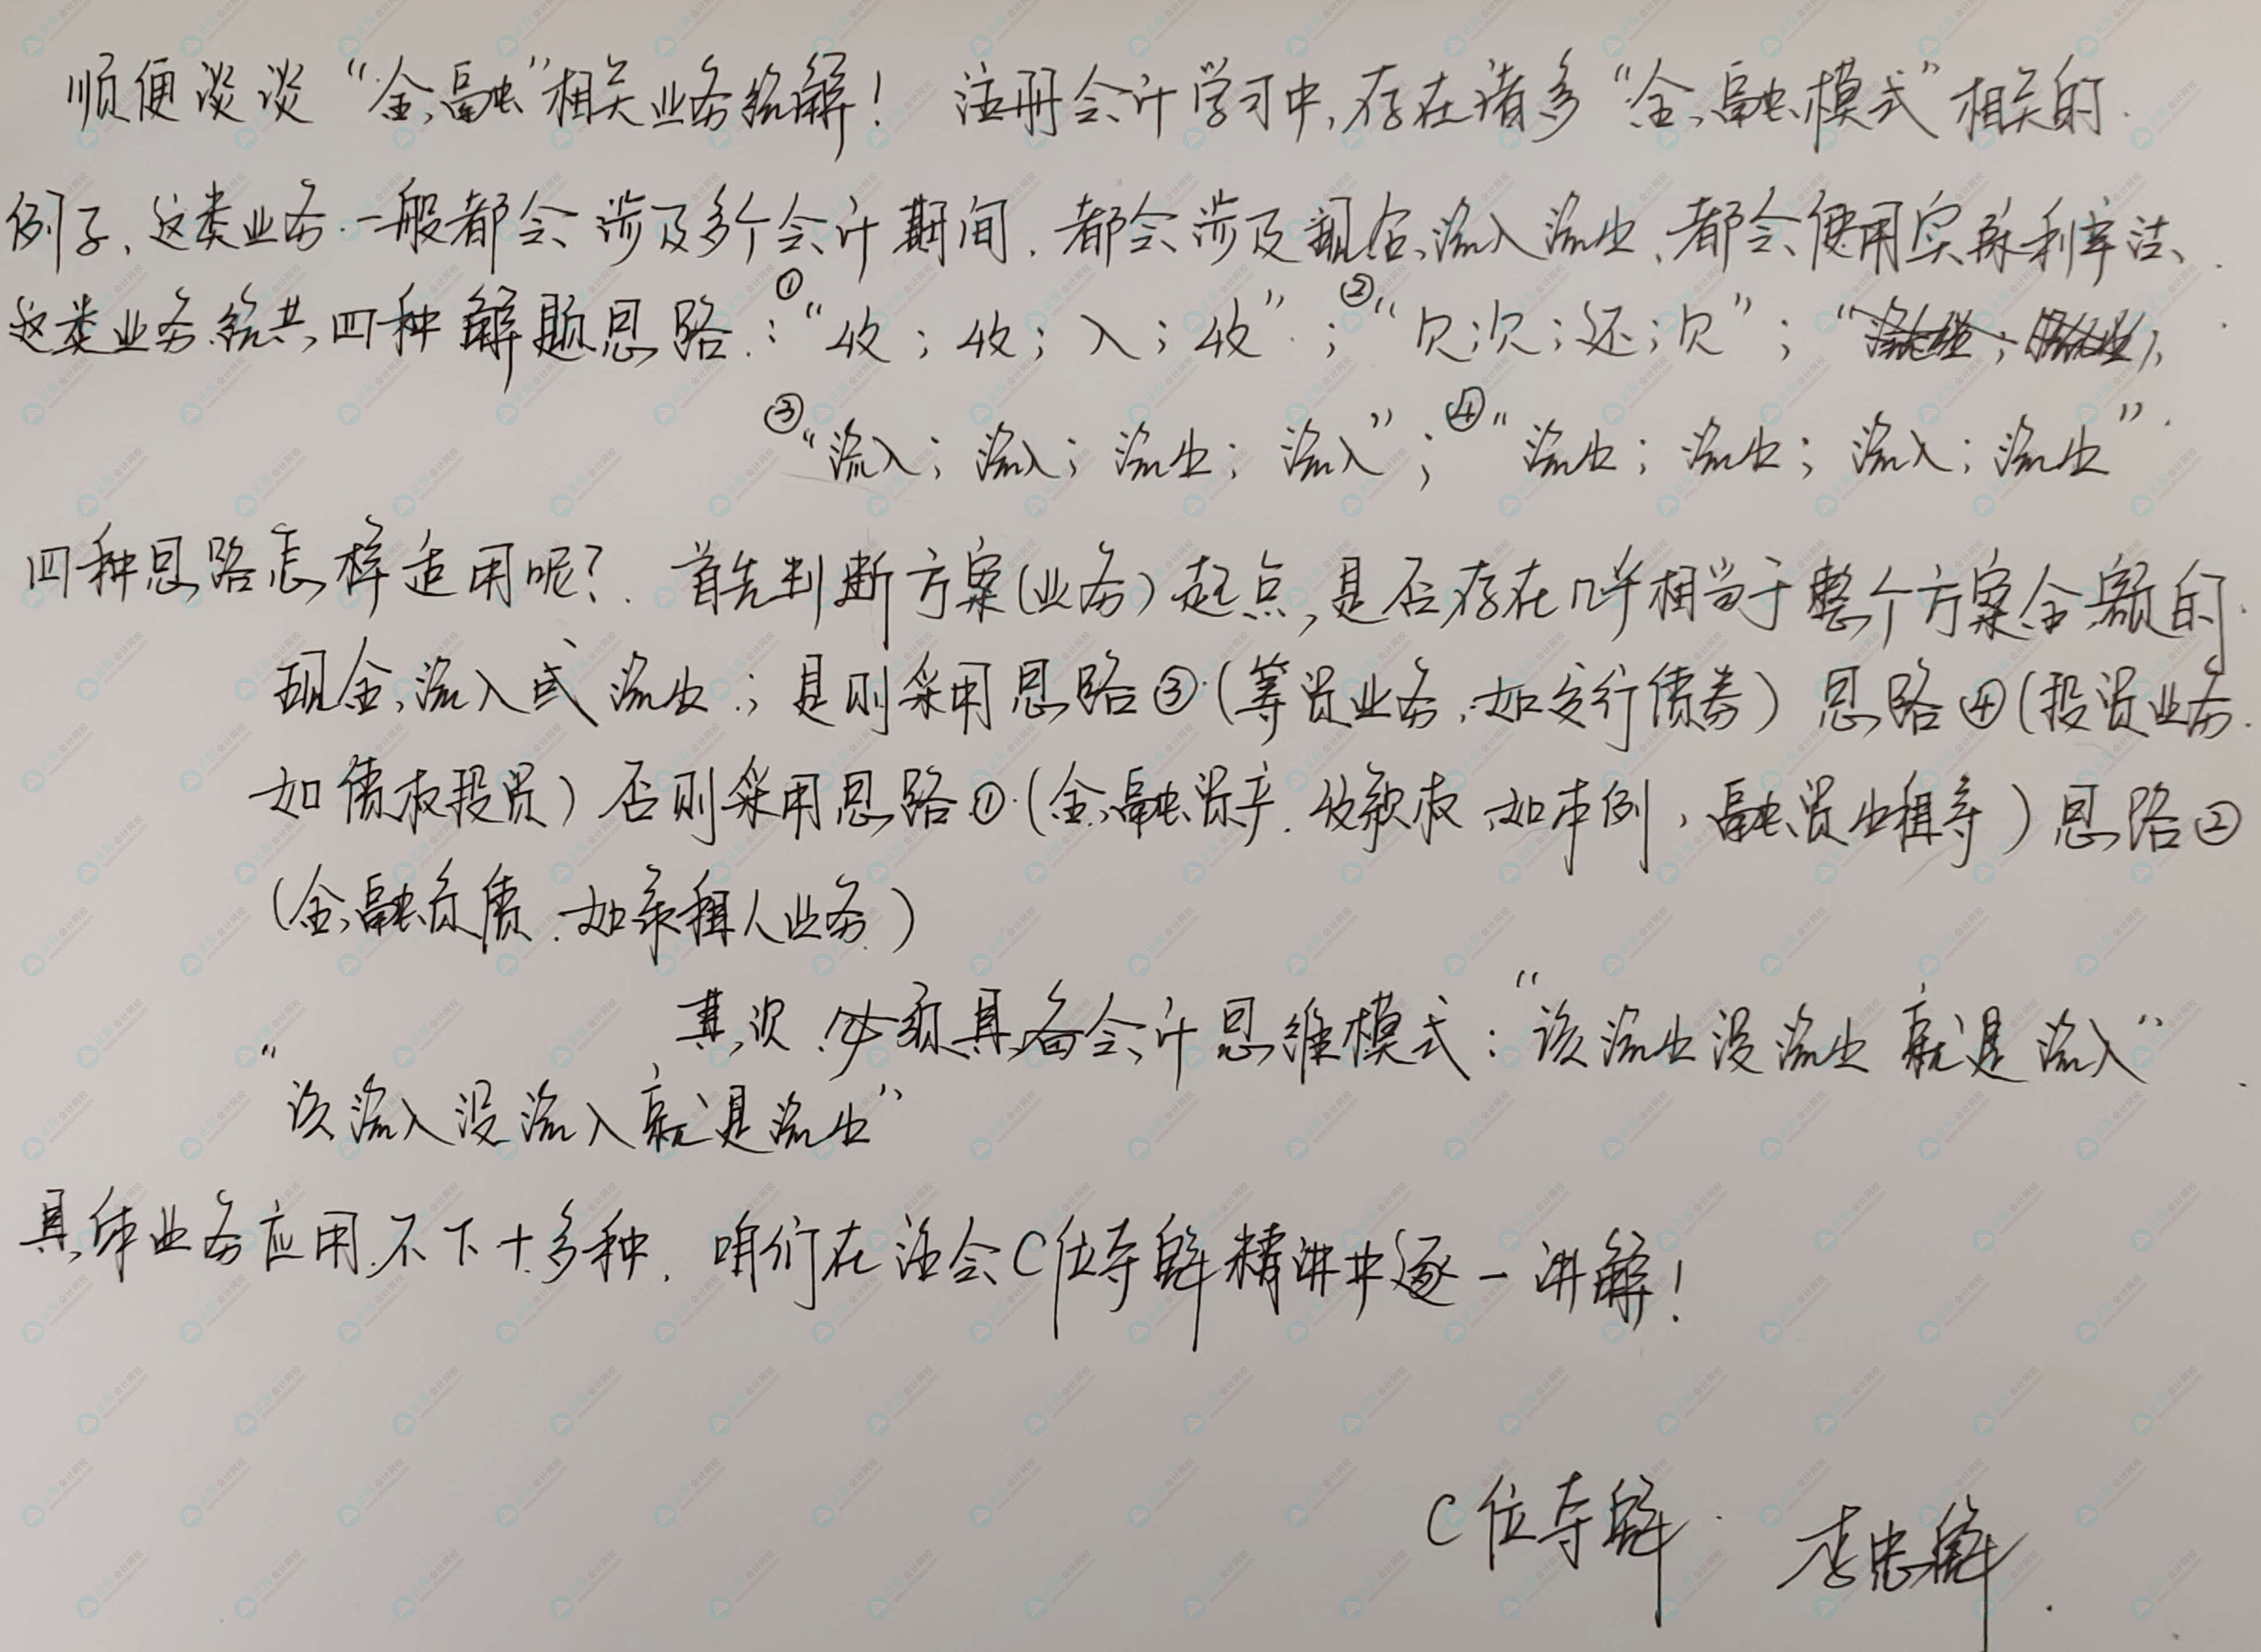 顺便谈谈“金融”相关业务统解！ 注册会计学习中，存在诸多“金融模式”相关的
例子，这类业务一般都会涉及多个会计期间，都会涉及现金流入流出，都会使用实际利率法，
这类业务统共四种解题思路：①“收；收；入；收”；②“欠；欠；还；欠”；“
③“流入；流入；流出；流入”；④“流出；流出；流入；流出”
四种思路怎样适用呢？首先判断方案（业务）起点，是否存在几乎相当于整个方案金额的
现金流入或流出；是则采用思路③（筹资业务，如发行债券）思路④（投资业务
如债权投资）否则采用思路①（金融资产，收款权，如本例，融资出租等）思路②
（金融负债，如承租人业务）
其次必须具备会计思维模式：“该流出没流出就是流入”
“该流入没流入就是流出”
具体业务应用不下十多种，咱们在注会C位夺魁精讲中逐一讲解！
C位夺魁 李忠魁
正保会计网校